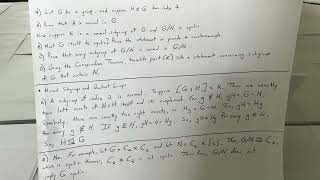 a) Let G be a group, and suppose H ≤ G has index 2.
Prove that H is normal in G
Now suppose N is a normal subgroup of G and G/N is cyclic.
b) Must G itself be cyclic? Prove the statement or provide a counterexample.
c) Prove that every subgroup of G/N is normal in G/N
d) Using the Correspondence Theorem, translate part (c) into a statement concerning subgroups
of G that contain N.
Normal Subgroups and Quotient Groups
a) A subgroup of index 2 is normal. Suppose [G : H] = 2. Then we have exactly
two left cosets of H: H itself and its complement. For g ∉ H, gH = G − H.
Similarly, there are exactly two right cosets, so Hg = G − H. So, gH = Hg
for every g ∉ H. If g ∈ H, gH = H = Hg. So, gH = Hg for every g ∈ G,
So, H ⊴ G
b) No. For example, let G = C₂ × C₂ and let N = C₂ × {e}. Then, G/N ≅ C₂,
which is cyclic. However, C₂ × C₂ is not cyclic. Therefore, G/N does not
imply G cyclic.